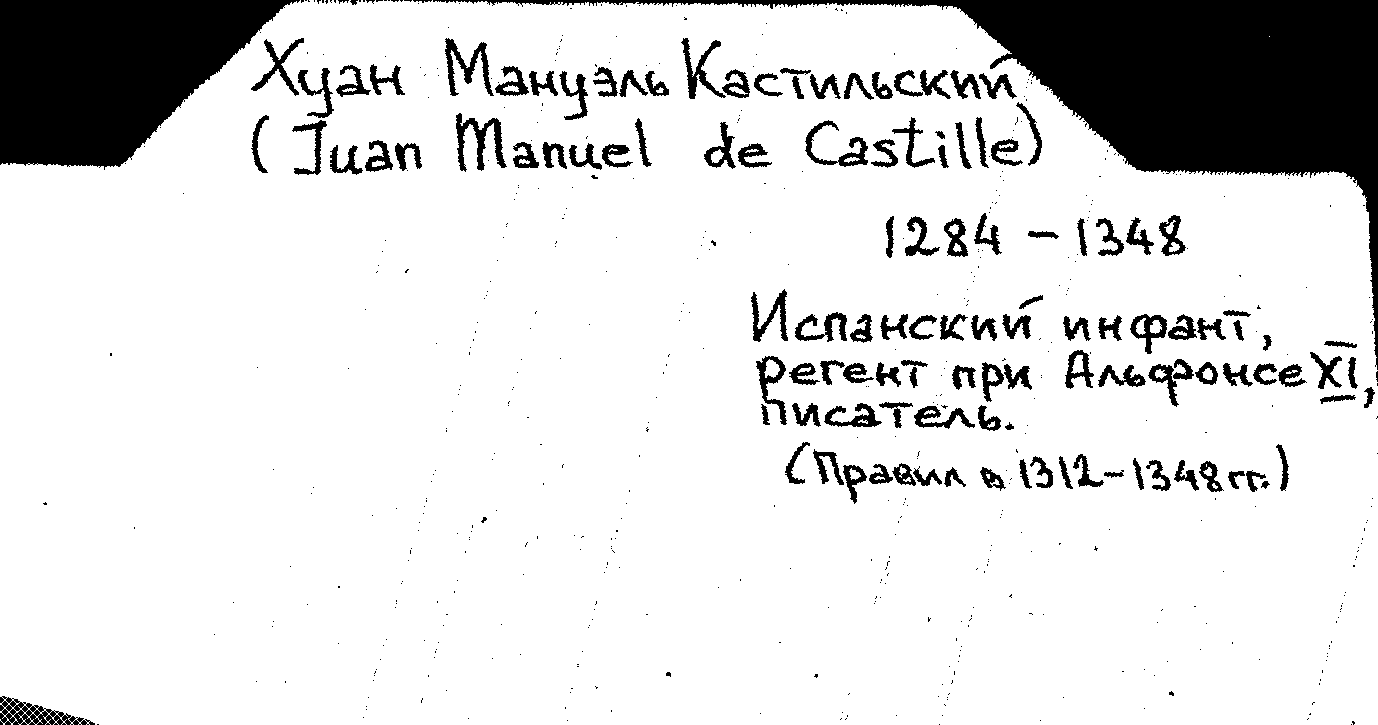 Хуан Мануэль Кастильский
(Juan Manuel de Castille)
1284 – 1348
Испанский инфант,
регент при Альфонсе XI,
писатель.
(Правил в 1312–1348 гг.)